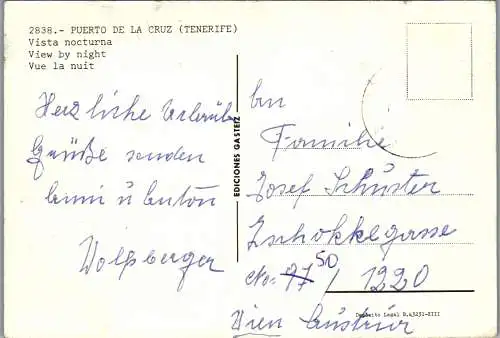 2838.- PUERTO DE LA CRUZ (TENERIFE)
Vista nocturna
View by night
Vue la nuit
Herzliche Urlaub
Grüße senden
Anni u Anton
Wolfsberger
EDICIONES GASTEIZ
An
Familie
Josef Schuster
Zschokkegasse
No: 97 50 / 1220
Wien Austria
Depósito Legal B.43231-XIII